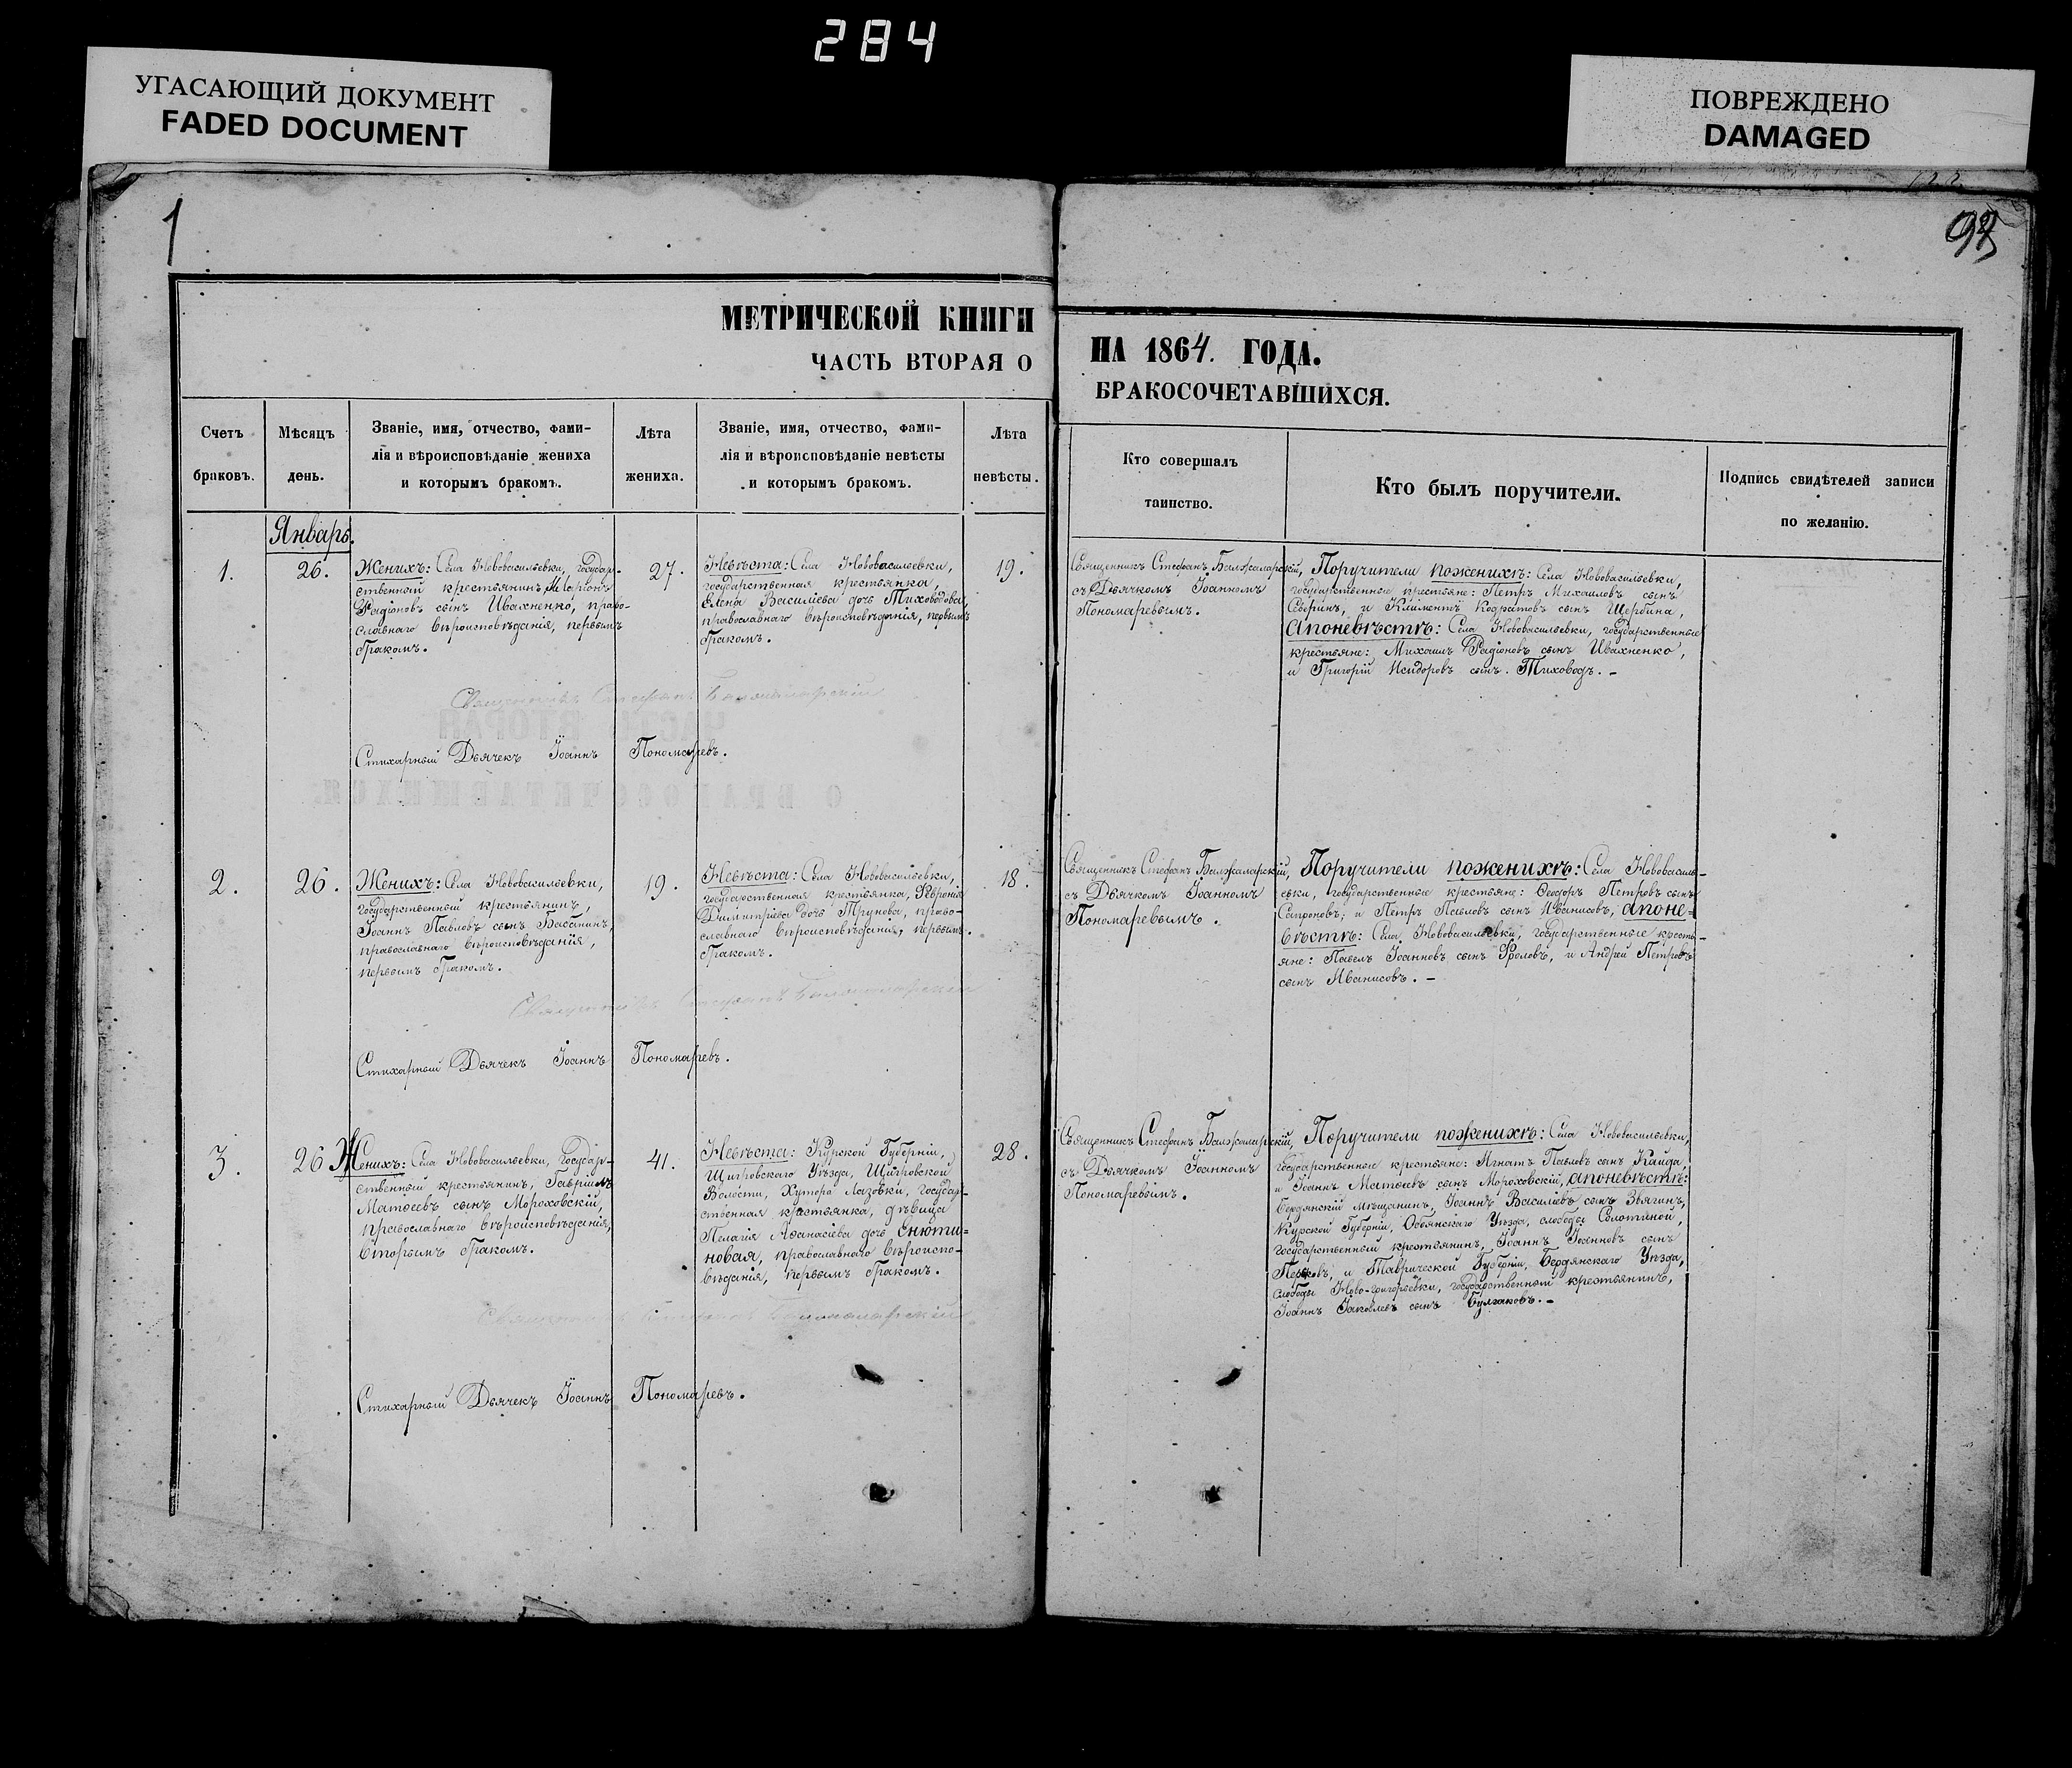 284
УГАСАЮЩИЙ ДОКУМЕНТ
FADED DOCUMENT
ПОВРЕЖДЕНО
DAMAGED
1
МЕТРИЧЕСКОЙ КНИГИ
ЧАСТЬ ВТОРАЯ О
НА 1864. ГОДА.
БРАКОСОЧЕТАВШИХСЯ.
Счетъ
браковъ.
Мѣсяцъ
день.
Званіе, имя, отчество, фами-
лія и вѣроисповѣданіе жениха
и которымъ бракомъ.
Лѣта
жениха.
Званіе, имя, отчество, фами-
лія и вѣроисповѣданіе невѣсты
и которымъ бракомъ.
Лѣта
невѣсты.
Кто совершалъ
таинство.
Кто былъ поручители.
Подпись свидѣтелей записи
по желанію.
Январь.
1.
26.
Женихъ: Села Нововасильевки, государ-
ственный крестьянинъ, Иларіонъ
Радіоновъ сынъ Ивахненко, право-
славнаго вѣроисповѣданія, первымъ
бракомъ.
27.
Невѣста: Села Нововасильевки,
государственная крестьянка,
Елена Василіева дочь Тиховодова,
православнаго вѣроисповѣданія, первымъ
бракомъ.
19.
Священникъ Стефанъ Балжаларскій,
съ Дьячкомъ Іоанномъ
Пономаревымъ.
Поручители поженихѣ: Села Нововасильевки,
государственные крестьяне: Петръ Михаиловъ сынъ
Сѣверинъ, и Климентъ Кодратовъ сынъ Щербина,
апоневѣстѣ: Села Нововасильевки, государственные
крестьяне: Михаилъ Радіоновъ сынъ Ивахненко,
и Григорій Исидоровъ сынъ Тиховодъ. –
Священникъ Стефанъ Балжаларскій
Стихарный Дьячекъ Іоаннъ Пономаревъ.
2.
26.
Женихъ: Села Нововасильевки,
государственный крестьянинъ,
Іоаннъ Павловъ сынъ Басанинъ,
православнаго вѣроисповѣданія,
первымъ бракомъ.
19.
Невѣста: Села Нововасильевки,
государственная крестьянка, Февронія
Димитріева дочь Трунова, право-
славнаго вѣроисповѣданія, первымъ
бракомъ.
18.
Священникъ Стефанъ Балжаларскій,
съ Дьячкомъ Іоанномъ
Пономаревымъ.
Поручители поженихѣ: Села Нововасиль-
евки, государственные крестьяне: Ѳеодоръ Петровъ сынъ
Сапроновъ; и Петръ Павловъ сынъ Иванисовъ, апоне-
вѣстѣ: Села Нововасильевки, государственные кресть-
яне: Павелъ Іоанновъ сынъ Фроловъ, и Андрей Петровъ
сынъ Иванисовъ. –
Священникъ Стефанъ Балжаларскій
Стихарный Дьячекъ Іоаннъ Пономаревъ.
3.
26
Женихъ: Села Нововасильевки, государ-
ственный крестьянинъ, Гавріилъ
Матѳеевъ сынъ Мороховскій,
православнаго вѣроисповѣданія,
вторымъ бракомъ.
41.
Невѣста: Курской Губерніи,
Щигровскаго Уѣзда, Щигровской
Волости, Хутора Лазовки, государ-
ственная крестьянка, дѣвица
Пелагія Аѳанасіева дочь Енюти-
новая, православнаго вѣроиспо-
вѣданія, первымъ бракомъ.
28.
Священникъ Стефанъ Балжаларскій,
съ Дьячкомъ Іоанномъ
Пономаревымъ.
Поручители поженихѣ: Села Нововасильевки,
государственные крестьяне: Игнатъ Павловъ сынъ Кайда,
и Іоаннъ Матѳеевъ сынъ Мороховскій, апоневѣстѣ:
Бердянскій мѣщанинъ, Іоаннъ Василіевъ сынъ Звягинъ,
Курской Губерніи, Обоянскаго Уѣзда, слободы Солотиной,
государственный крестьянинъ, Іоаннъ Іоанновъ сынъ
и Таврической Губерніи, Бердянскаго Уѣзда,
слободы Ново-григорьевки, государственный крестьянинъ,
Іоаннъ Іаковлевъ сынъ Булгаковъ. –
Священникъ Стефанъ Балжаларскій
Стихарный Дьячекъ Іоаннъ Пономаревъ.